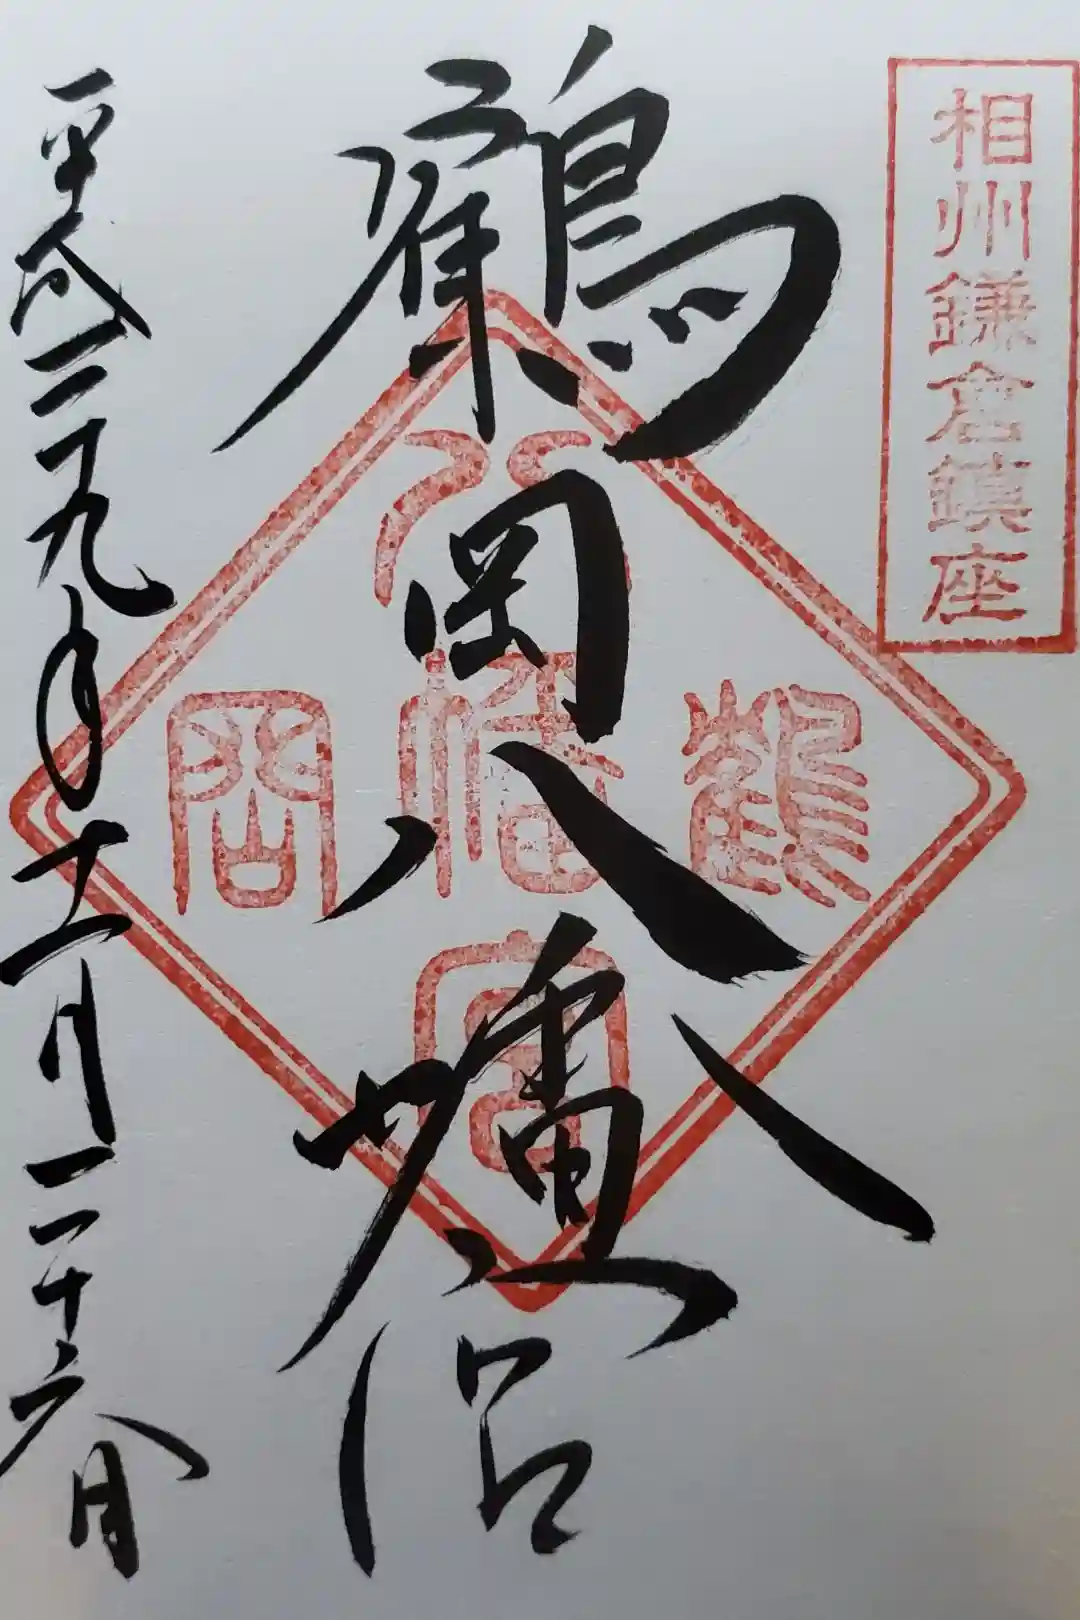 相州鎌倉鎮座
鶴岡八幡宮
鶴岡八幡宮
平成二十九年十一月二十六日